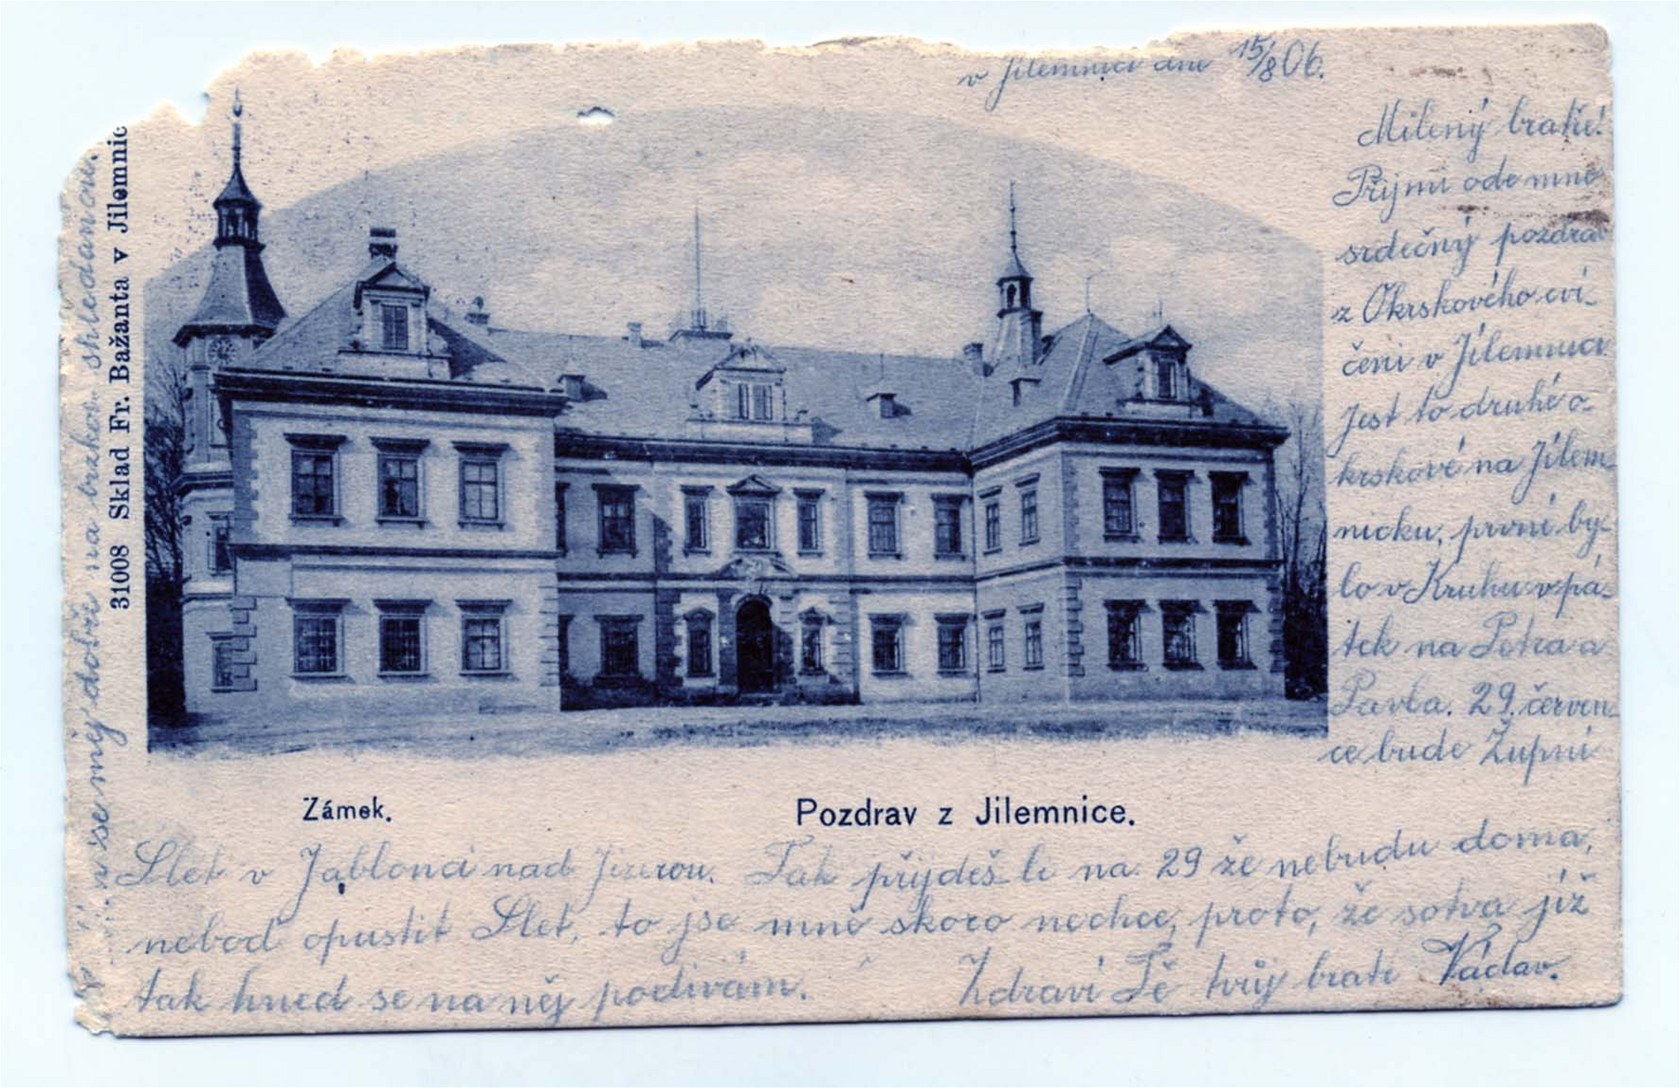 v Jilemnici dne 15/8 06.
Milený bratře!
Přijmi ode mně
srdečný pozdrav
z Okrskového cvi-
čení v Jilemnici
Jest to druhé o-
krskové na Jilem-
nicku, první by-
lo v Kruhu v pá-
tek na Petra a
Pavla. 29. červen-
ce bude Župní
Slet v Jablonci nad Jizerou. Tak přijdeš-li na 29 že nebudu doma,
neboď opustit Slet, to jse mně skoro nechce, proto, že sotva již
tak hned se na něj podívám. Zdraví Tě tvůj bratr Václav.
se mý dobře na brzkou shledanou.
31008 Sklad Fr. Bažanta v Jilemnic
Zámek.
Pozdrav z Jilemnice.